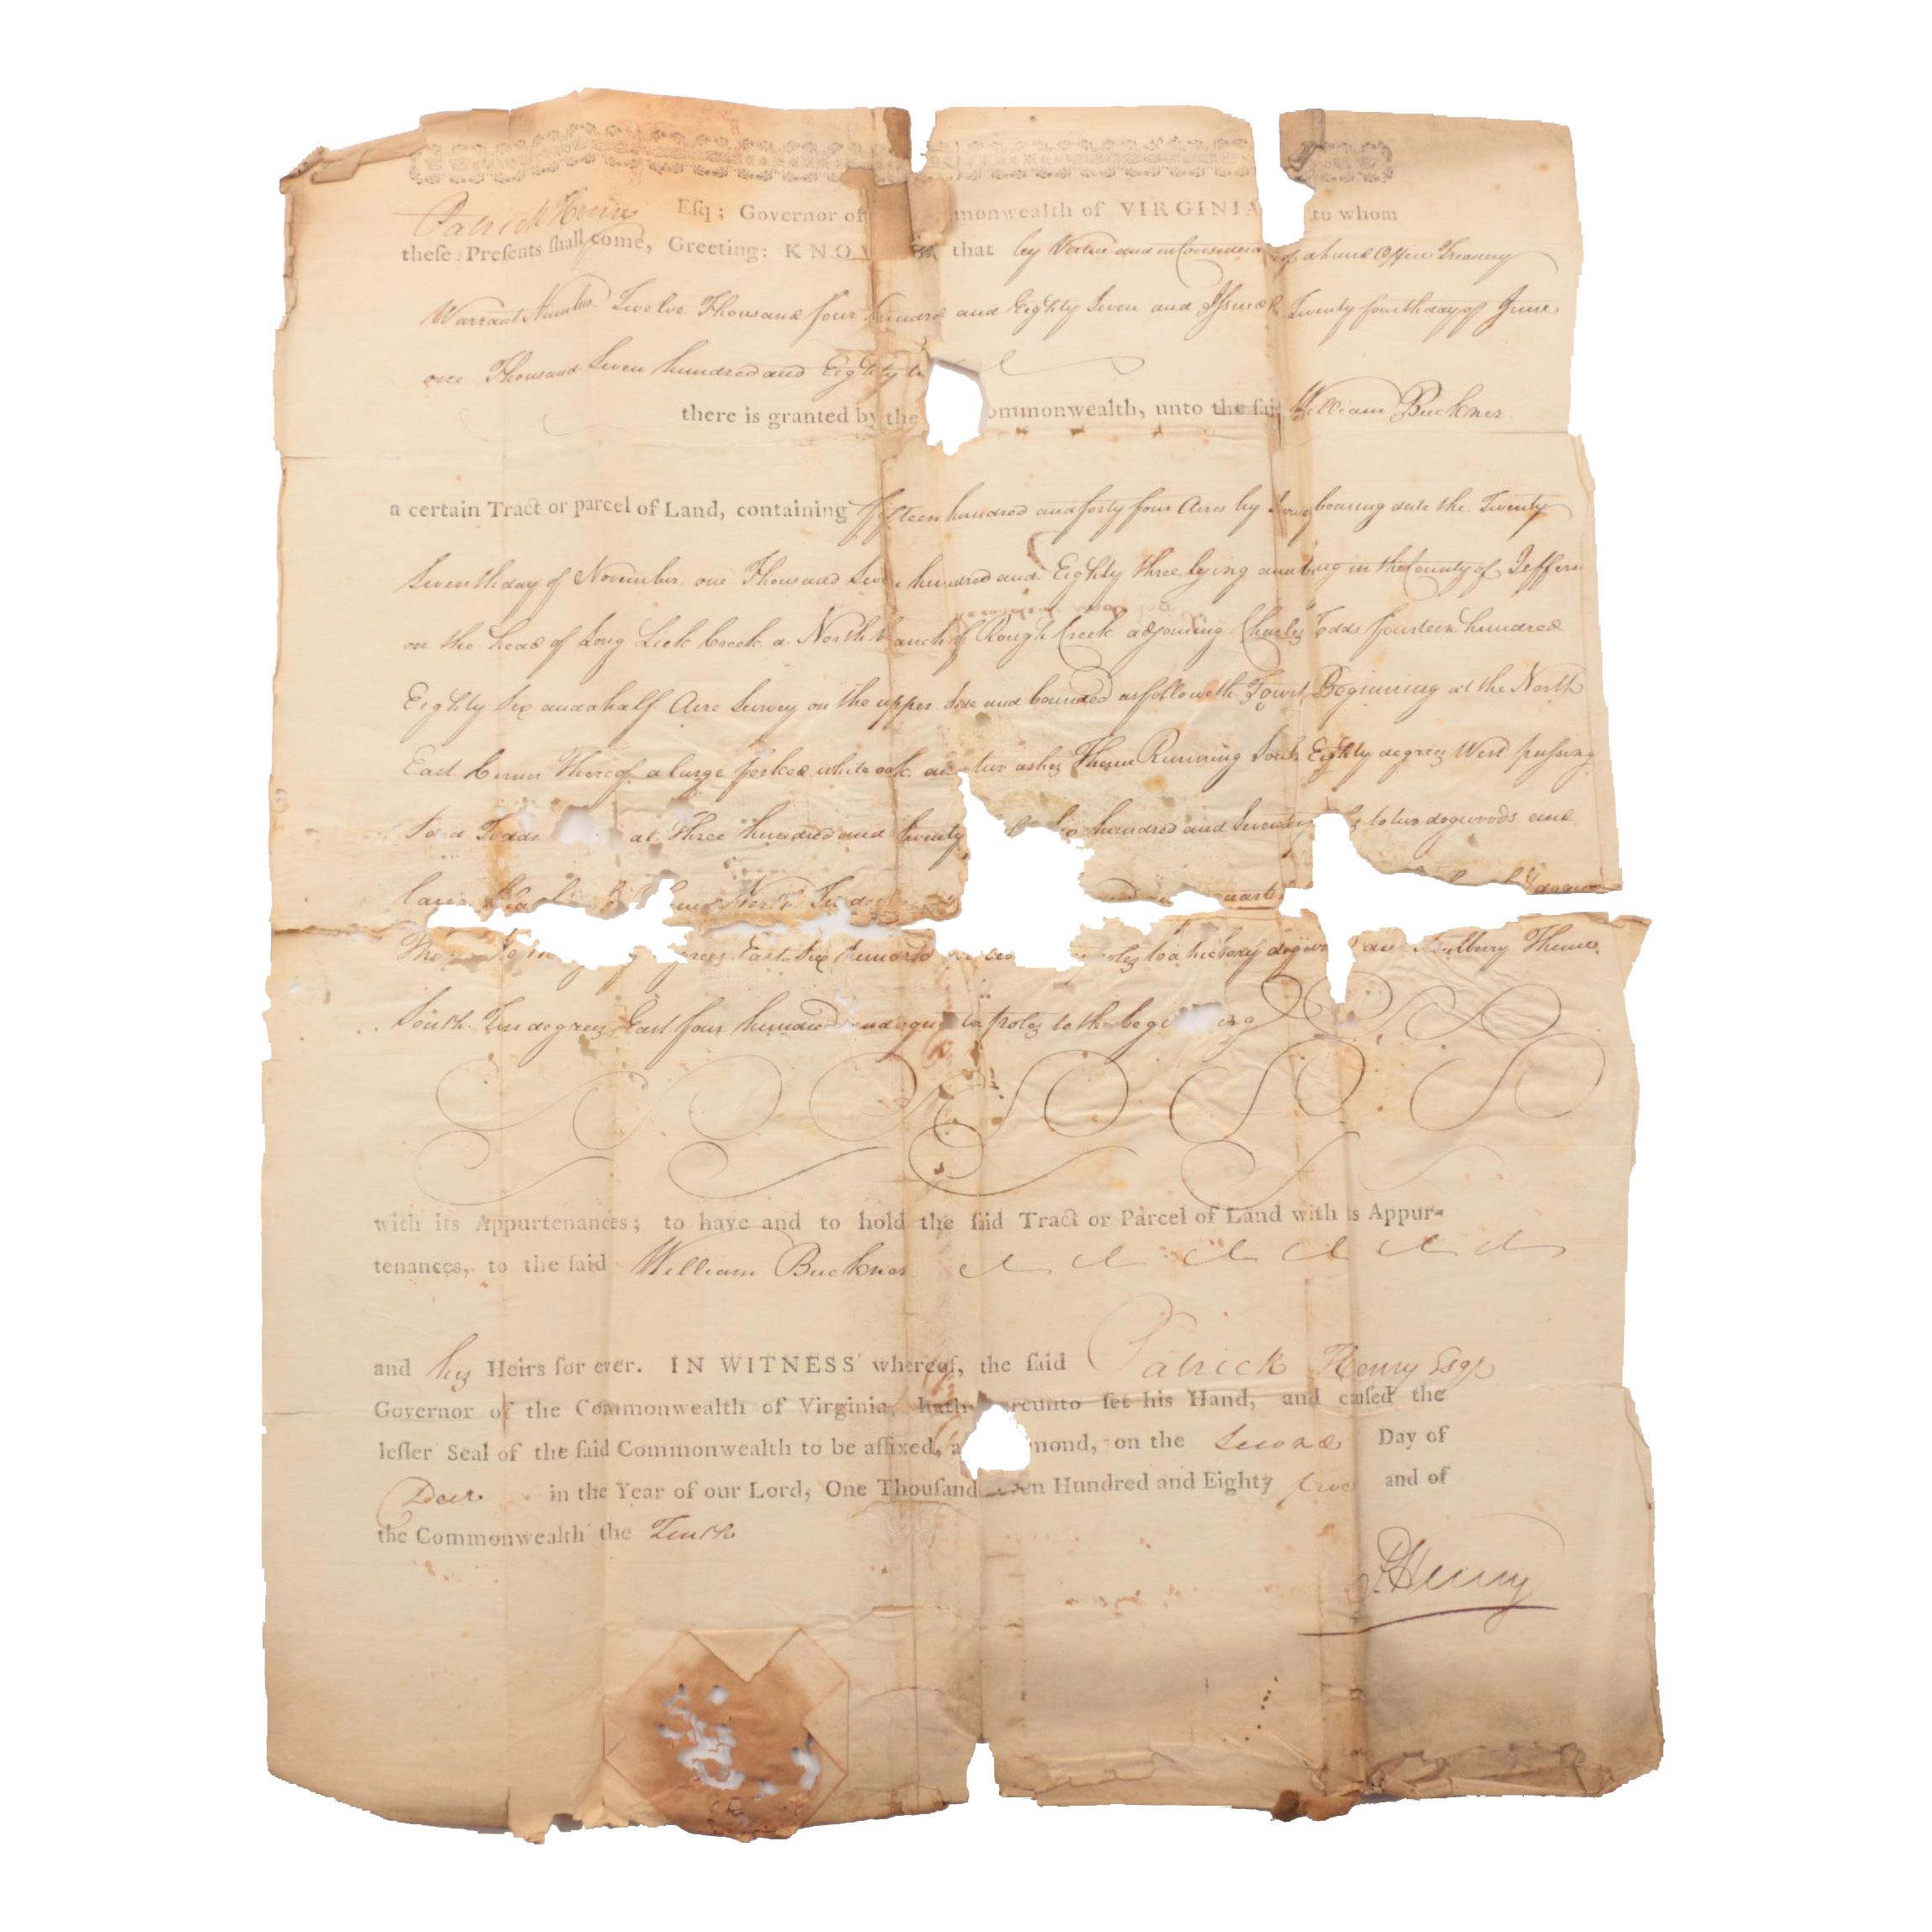 Patrick Henry Esq; Governor of monwealth of VIRGINIA to whom
theſe Preſents ſhall come, Greeting: KNO that by Virtue and in Consideration of a Land Office Treasury
Warrant Number Twelve Thousand four hundred and Eighty Seven and Issued Twenty fourth day of June
one Thousand Seven hundred and Eighty
there is granted by the ommonwealth, unto the ſaid William Buckner
a certain Tract or parcel of Land, containing fifteen hundred and forty four Acres by bearing date the Twenty
Seventh day of November one Thousand Seven hundred and Eighty three lying and being in the County of Jefferson
on the head of Long Lick Creek a North Branch of Rough Creek adjoining Charles Todds fourteen hundred
Eighty Six and a half Acre Survey on the upper Side and bounded as followeth Towit, Beginning at the North
East Corner Thereof a large forked white oak and two ashes Thence Running South Eighty degrees West passing
Said Todds at Three hundred and twenty hundred and Seventy to two dogwoods and
North Ten
East Six hundred poles to a hickory dogwood and Mulberry Thence
South Ten degrees East four hundred and poles to the beginning
with its Appurtenances; to have and to hold the ſaid Tract or Parcel of Land with is Appur-
tenances, to the ſaid William Buckner
and his Heirs for ever. IN WITNESS whereof, the ſaid Patrick Henry Esqr
Governor of the Commonwealth of Virginia, hath reunto ſet his Hand, and cauſed the
leſſer Seal of the ſaid Commonwealth to be affixed, a mond, on the Second Day of
Decr in the Year of our Lord, One Thouſand en Hundred and Eighty five and of
the Commonwealth the Tenth
P Henry